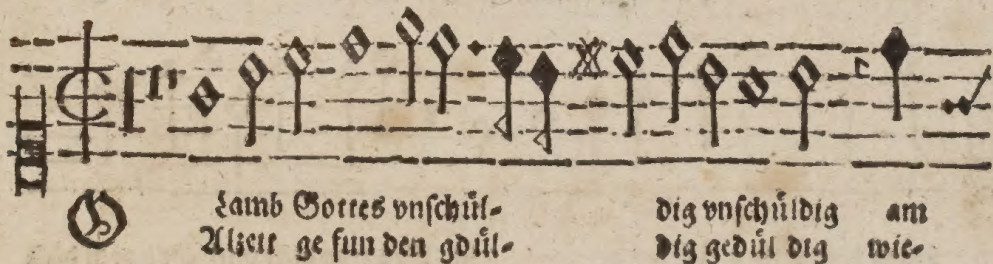 O Lamb Gottes vnſchül- dig vnſchüldig am
Alzeit ge fun den gdül- dig gedül dig wie-